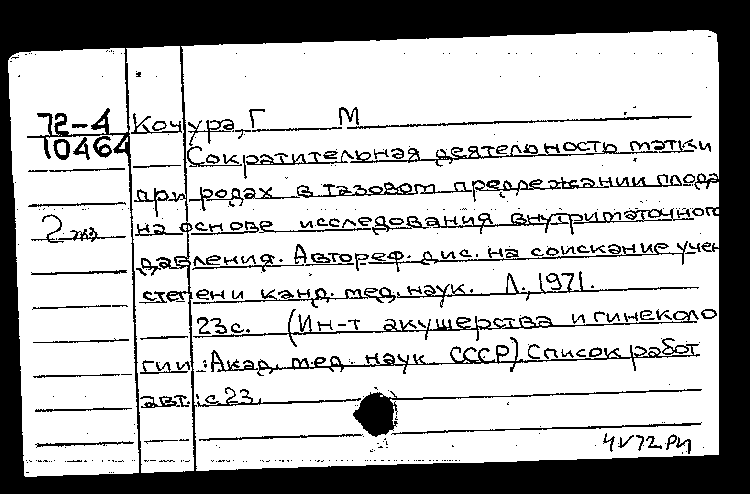 72-4 Кочура, Г М
10464 Сократительная деятельность матки
при родах в тазовом предлежании плода
2 экз на основе исследования внутриматочного
давления. Автореф. дис. на соискание учен
степени канд. мед. наук. Л., 1971.
23с. (Ин-т акушерства и гинеколо
гии. Акад. мед. наук СССР). Список работ
авт.: с 23.
4V72 РП